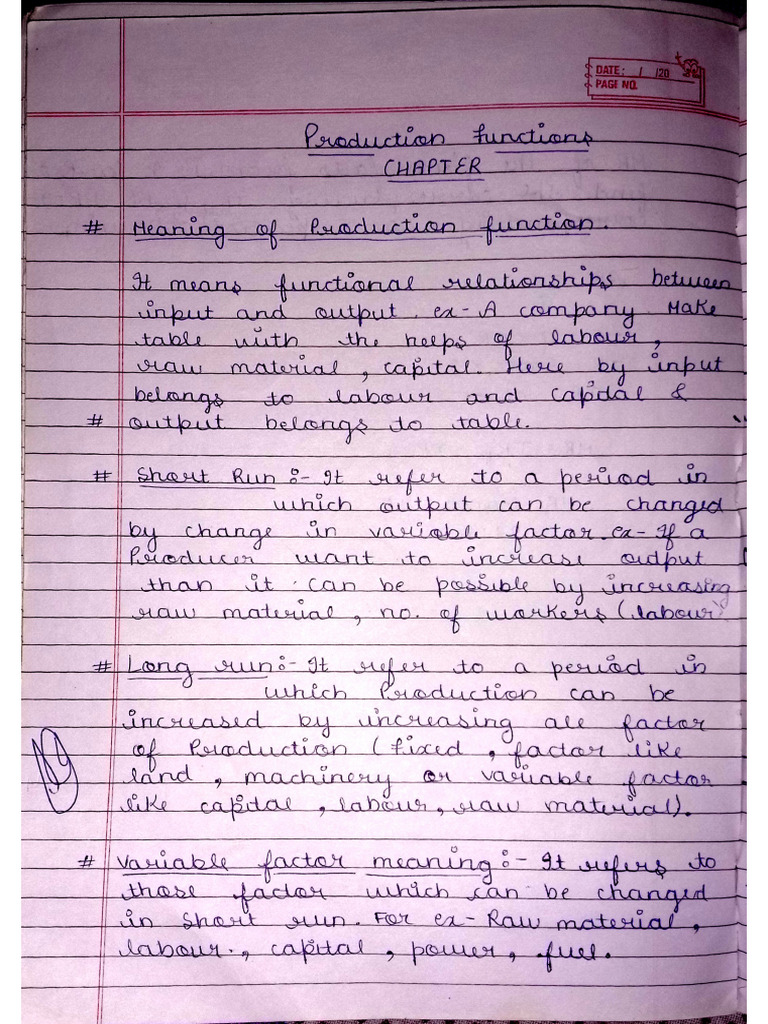 DATE: / /20
PAGE NO.
Production functions
CHAPTER
# Meaning of Production function.
It means functional relationships between
input and output ex- A company Make
table with the helps of labour,
raw material, capital. Here by input
belongs to labour and capital &
# output belongs to table.
# Short Run :- It refer to a period in
which output can be changed
by change in variable factor. ex- If a
Producer want to increase output
than it can be possible by increasing
raw material, no. of workers (labour)
# Long run:- It refer to a period in
which Production can be
increased by increasing all factor
of Production (fixed, factor like
land, machinery or variable factor
like capital, labour, raw material).
# Variable factor meaning:- It refers to
those factor which can be changed
in Short run. For ex- Raw material,
labour., capital, power, fuel.